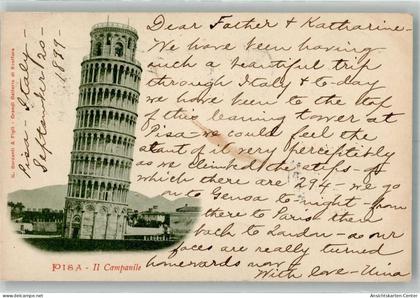 Dear Father & Katharine -
We have been having
such a beautiful trip
through Italy & to-day
we have been to the top
of this leaning tower at
Pisa - we could feel the
slant of it very perceptibly
as we climbed the steps - of
which there are 294 - we go
on to Genoa to-night - from
there to Paris then
back to London - as our
faces are really turned
homewards now
With love - Una
Pisa - Italy -
September
1899
G. Barsanti & Figli - Grandi Gallerie di Scultura
PISA - Il Campanile
www.ansichtskarten-center.de
Ansichtskarten-Center Onlineshop